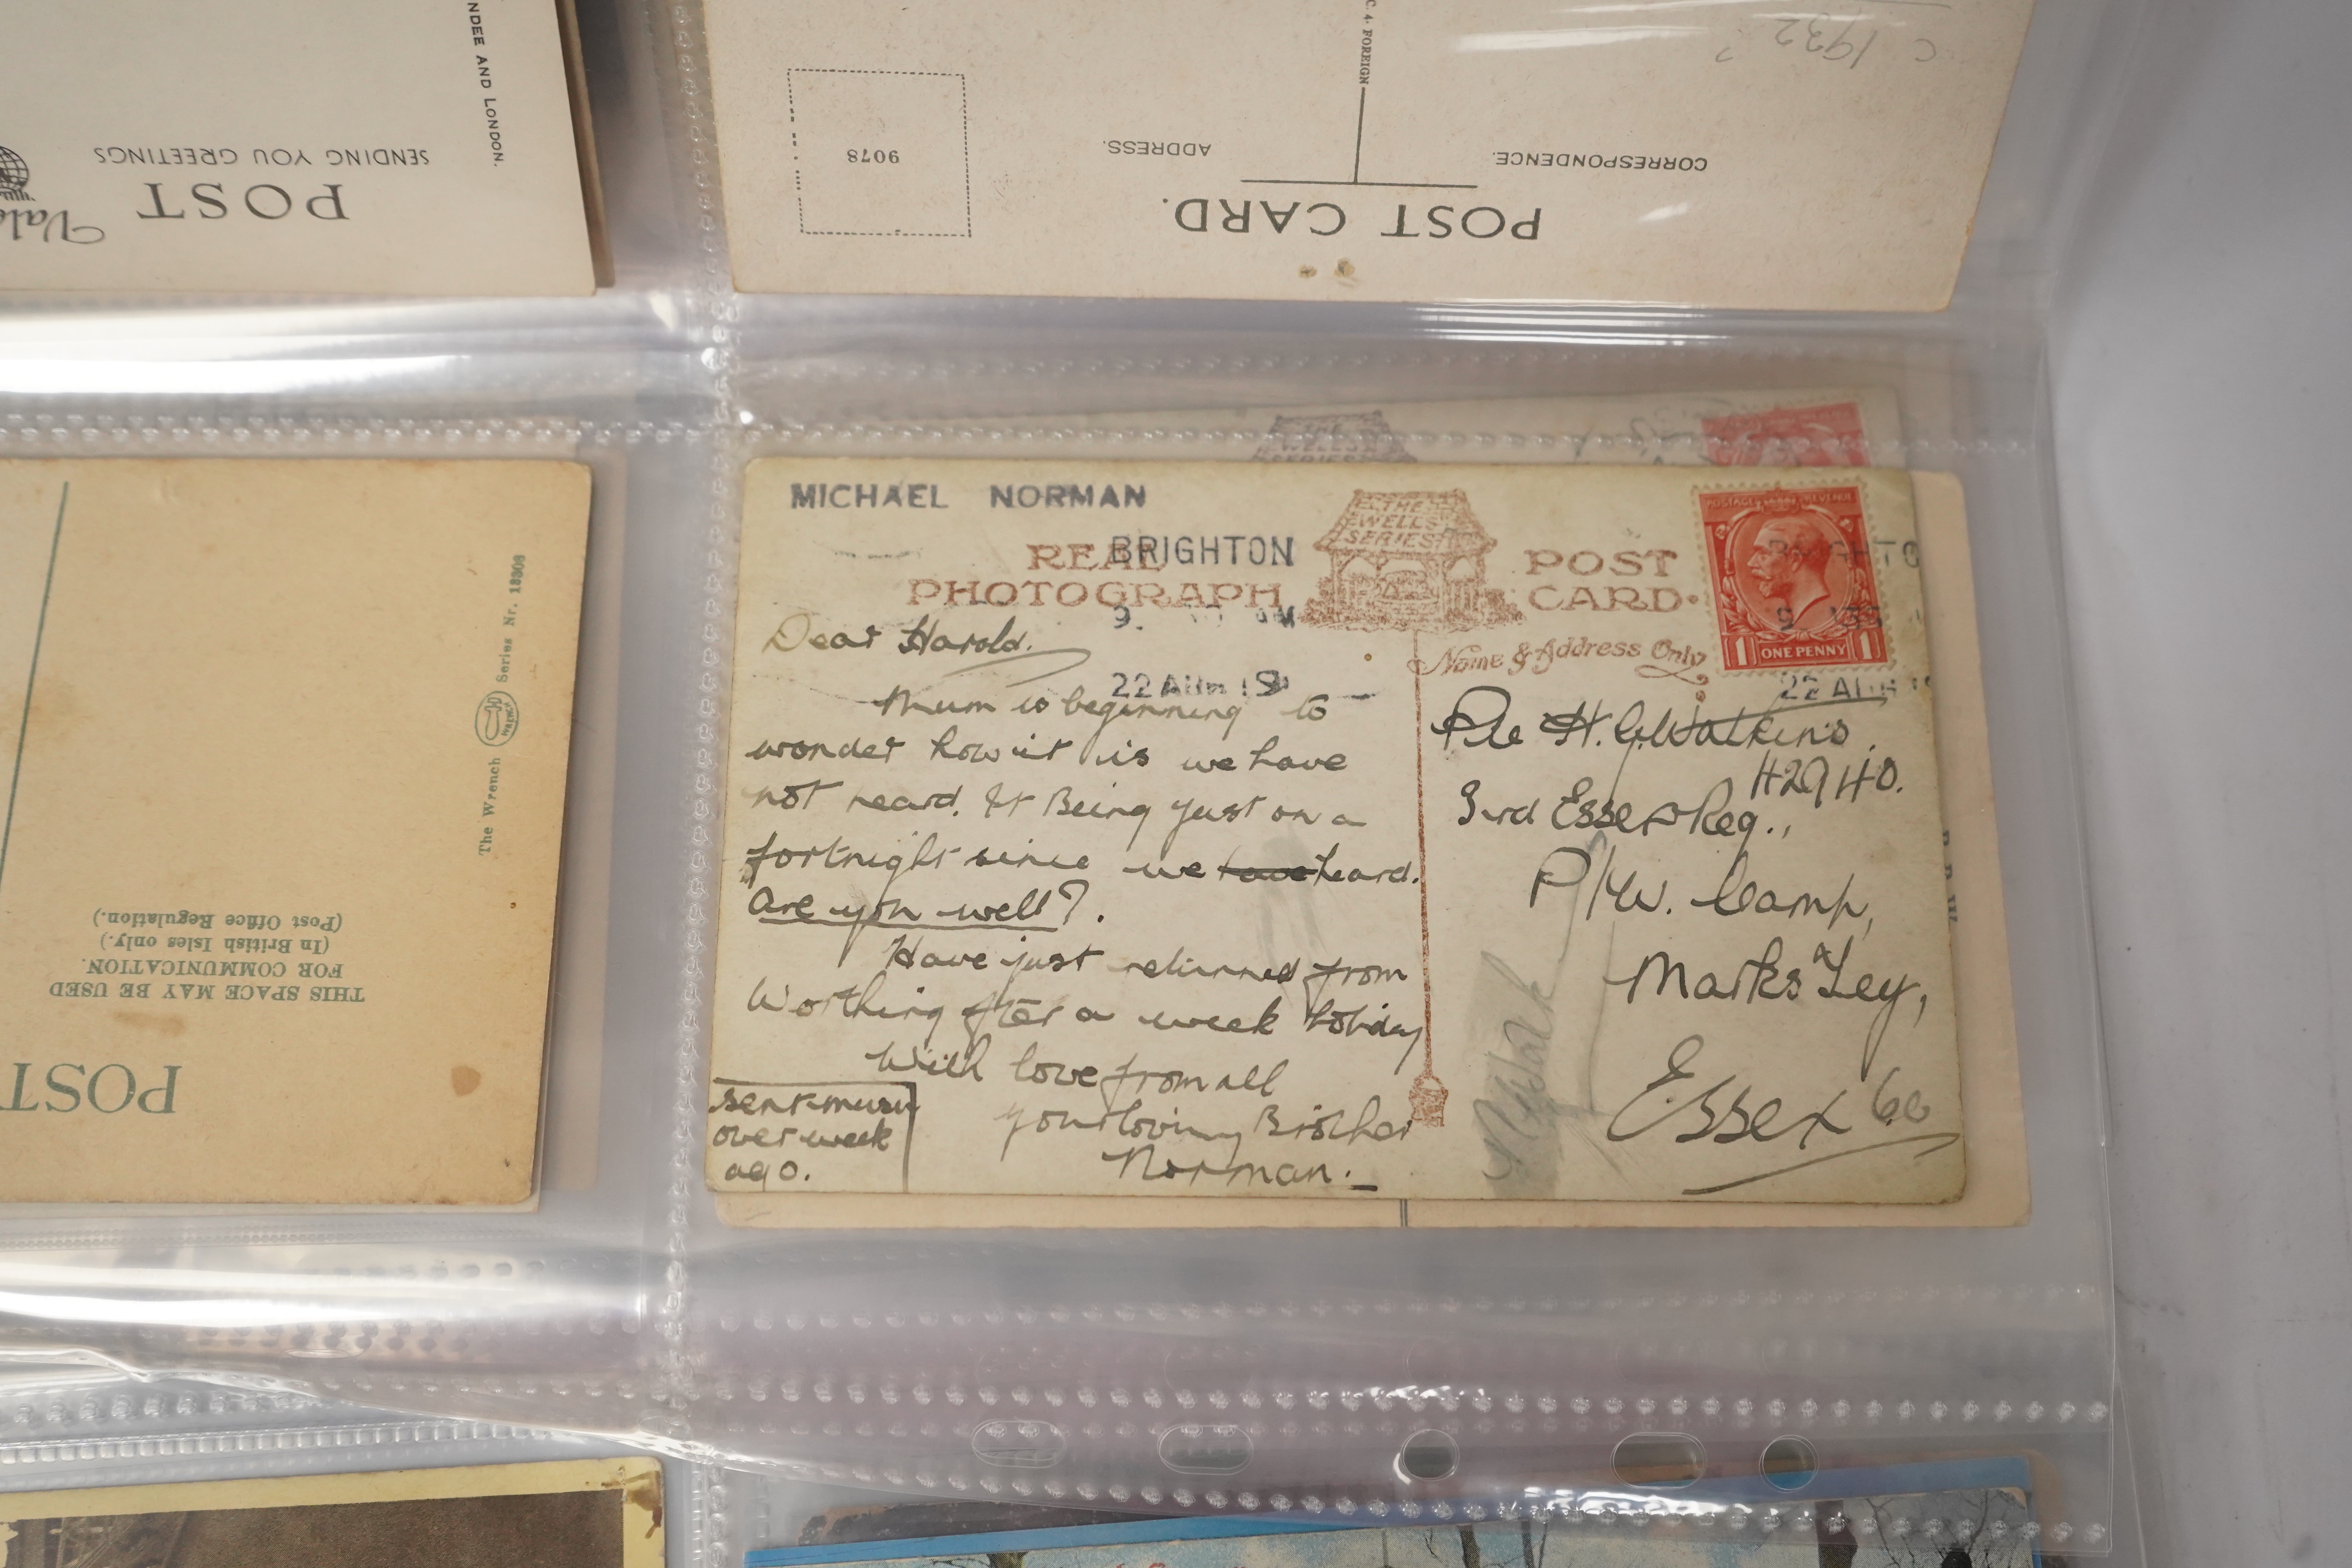 NDEE AND LONDON.
SENDING YOU GREETINGS
POST
C. 4. FOREIGN
C 1932?
9078
ADDRESS.
CORRESPONDENCE.
POST CARD.
THE
WELLS
SERIES
The Wrench Series Nr. 13308
THIS SPACE MAY BE USED
FOR COMMUNICATION.
(In British Isles only.)
(Post Office Regulation.)
POST
MICHAEL NORMAN
BRIGHTON
REAL
PHOTOGRAPH
THE
WELLS
SERIES
POST
CARD.
Name & Address Only
POSTAGE REVENUE
1 ONE PENNY 1
22 AUG 19
22 AUG 19
Dear Harold.
Mum is beginning to
wonder how it is we have
not heard. It Being just on a
fortnight since we have heard.
Are you well?.
Have just returned from
Worthing after a week holiday
With love from all
your loving Brother
Norman.
sent mum
over week
ago.
Pte H. G. Watkins.
42940.
3rd Essex Reg.,
P/W. Camp,
Marks Tey,
Essex Co